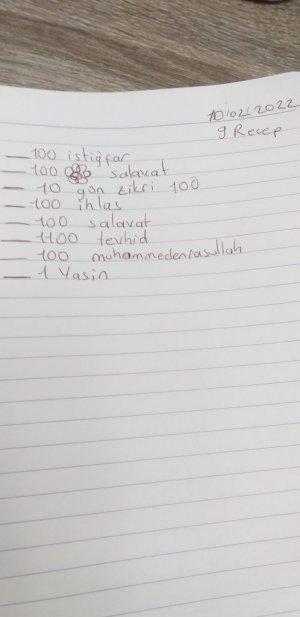 10/02/2022
9 Recep
— 100 istiğfar
— 100 salavat
— 10 gün zikri 100
— 100 ihlas
— 100 salavat
— 1100 tevhid
— 100 muhammedenrasullah
— 1 Yasin